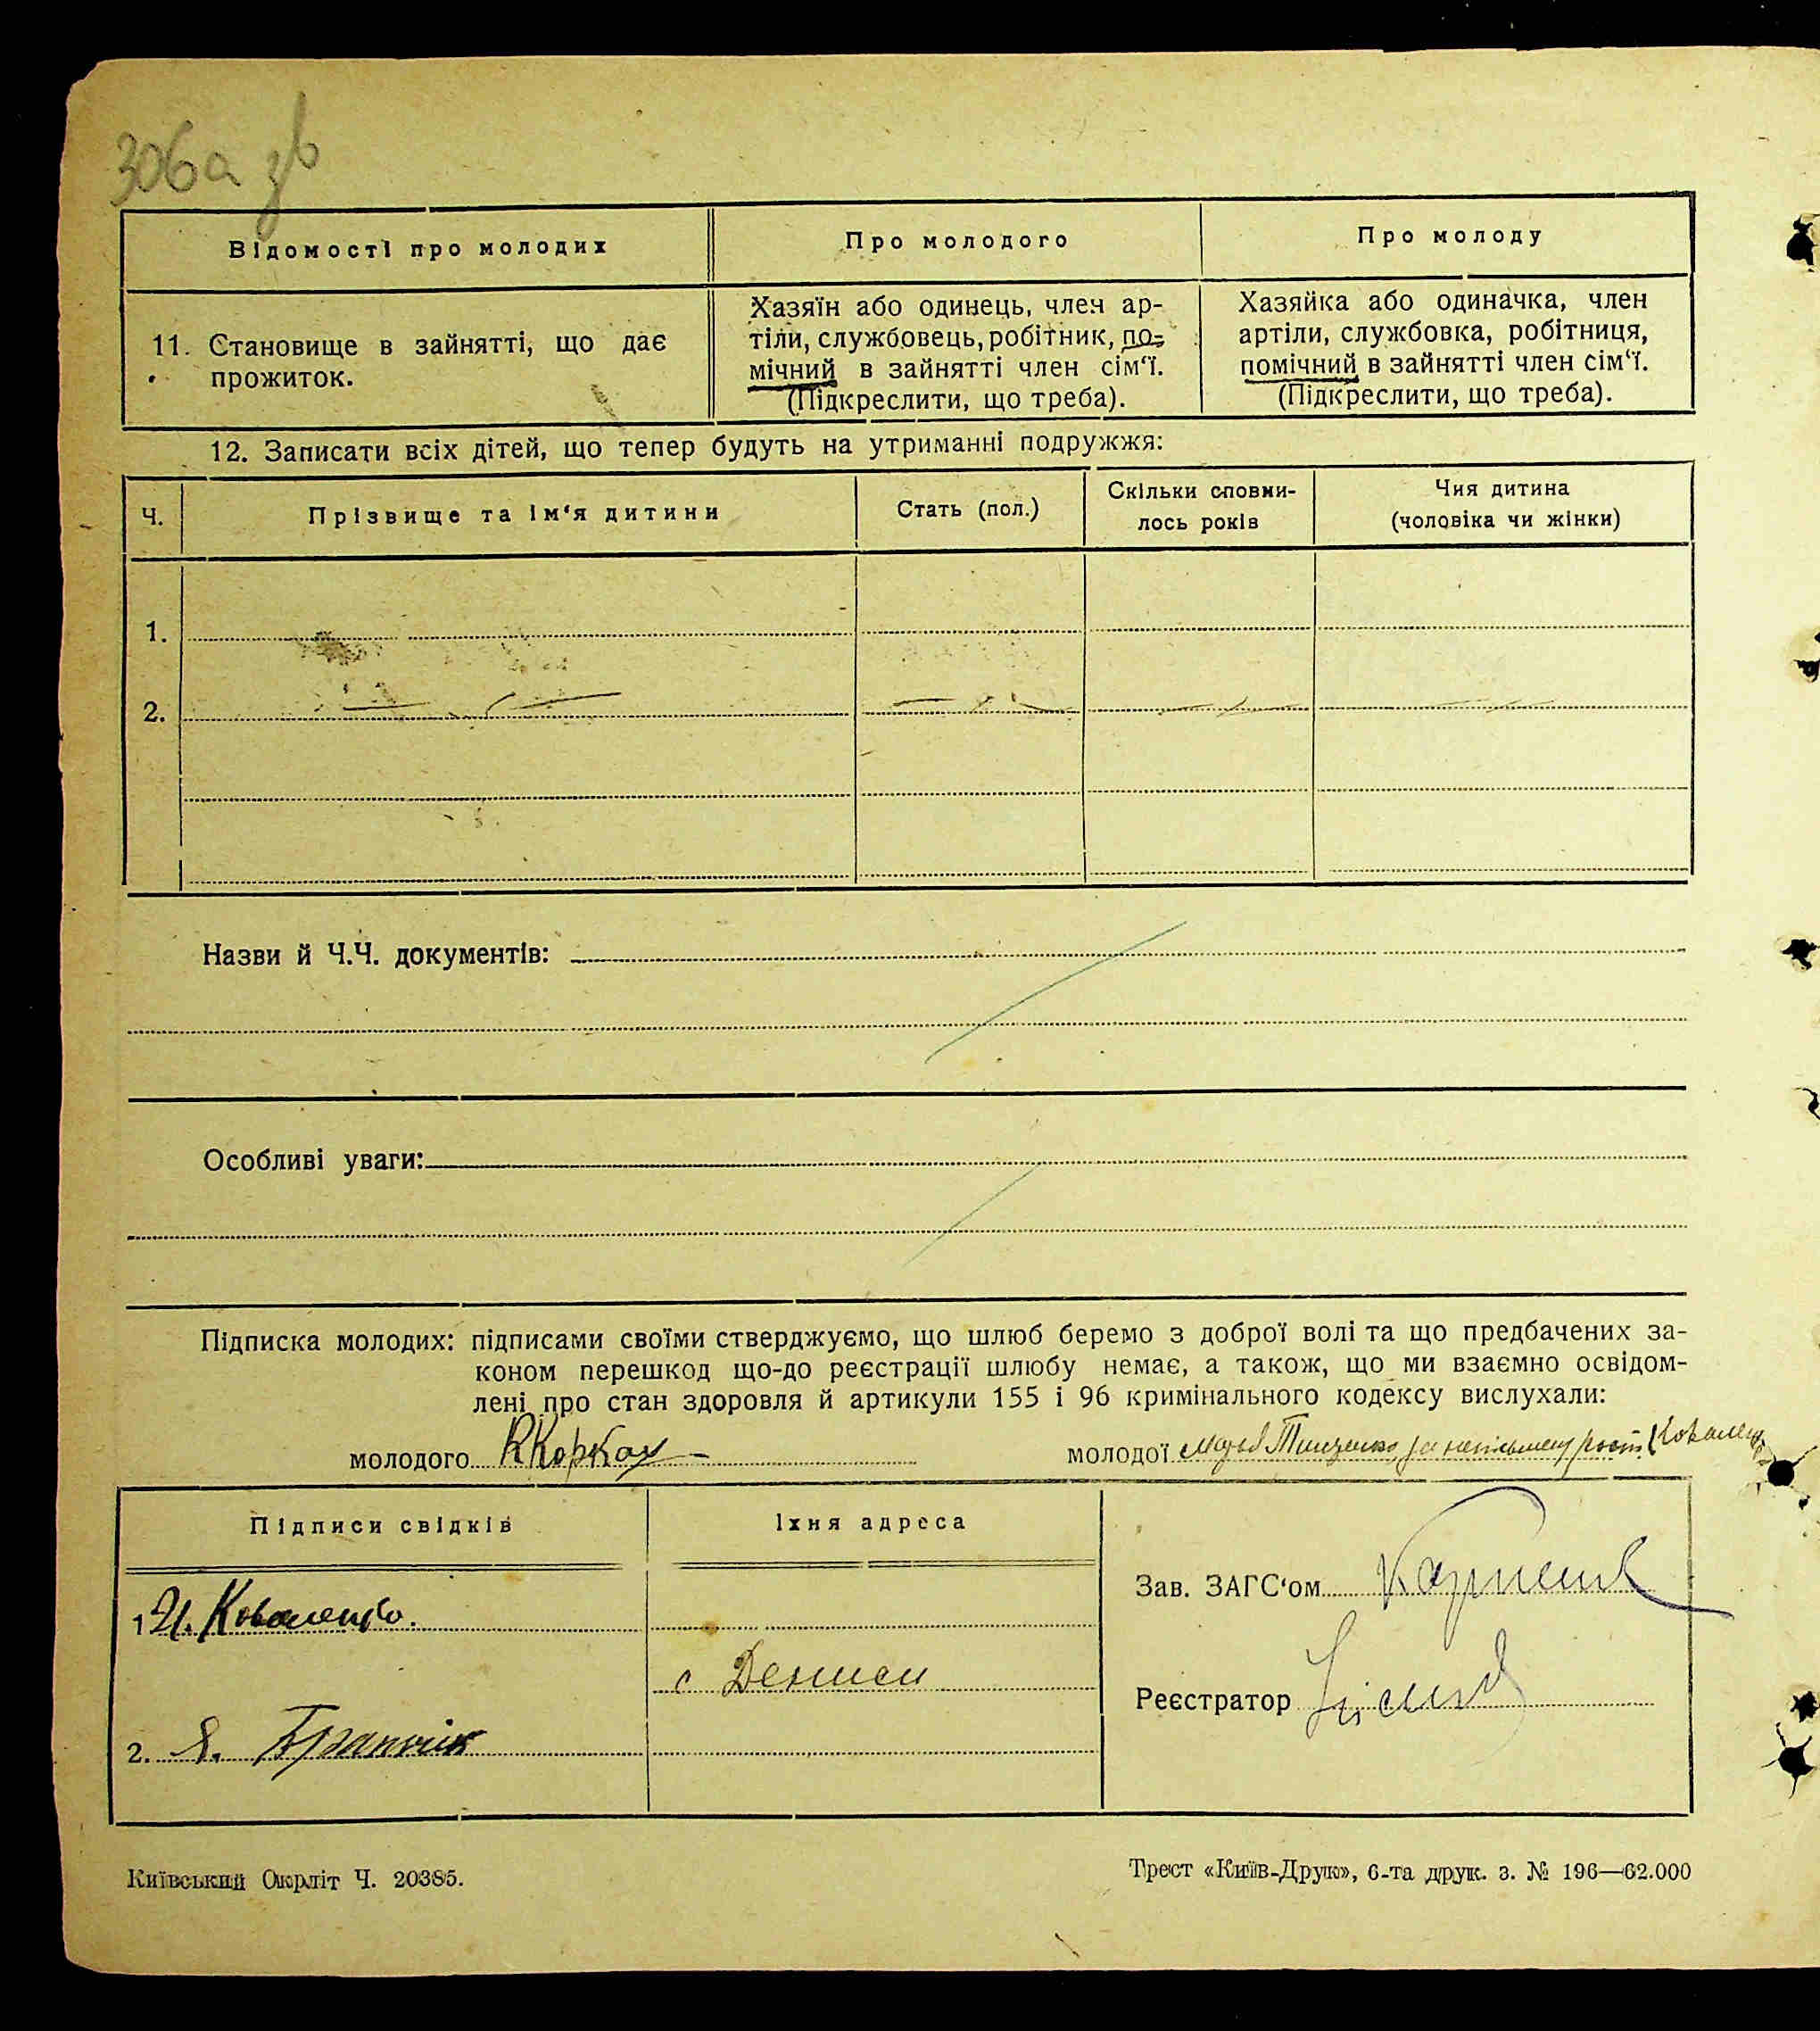 306а зв
Відомості про молодих
Про молодого
Про молоду
11. Становище в зайнятті, що дає
прожиток.
Хазяїн або одинець, член ар-
тіли, службовець, робітник, по-
мічний в зайнятті член сім‘ї.
(Підкреслити, що треба).
Хазяйка або одиначка, член
артіли, службовка, робітниця,
помічний в зайнятті член сім‘ї.
(Підкреслити, що треба).
12. Записати всіх дітей, що тепер будуть на утриманні подружжя:
Ч.
Прізвище та ім‘я дитини
Стать (пол.)
Скільки сповни-
лось років
Чия дитина
(чоловіка чи жінки)
1.
2.
Назви й Ч.Ч. документів:
Особливі уваги:
Підписка молодих: підписами своїми стверджуємо, що шлюб беремо з доброї волі та що предбачених за-
коном перешкод що-до реєстрації шлюбу немає, а також, що ми взаємно освідом-
лені про стан здоровля й артикули 155 і 96 кримінального кодексу вислухали:
молодого
молодої
Підписи свідків
Їхня адреса
1 И. Коваленко.
с Дениси
2. Я.
Зав. ЗАГС‘ом
Реєстратор
Київський Окрліт Ч. 20385.
Трест «Київ-Друк», 6-та друк. з. № 196—62.000